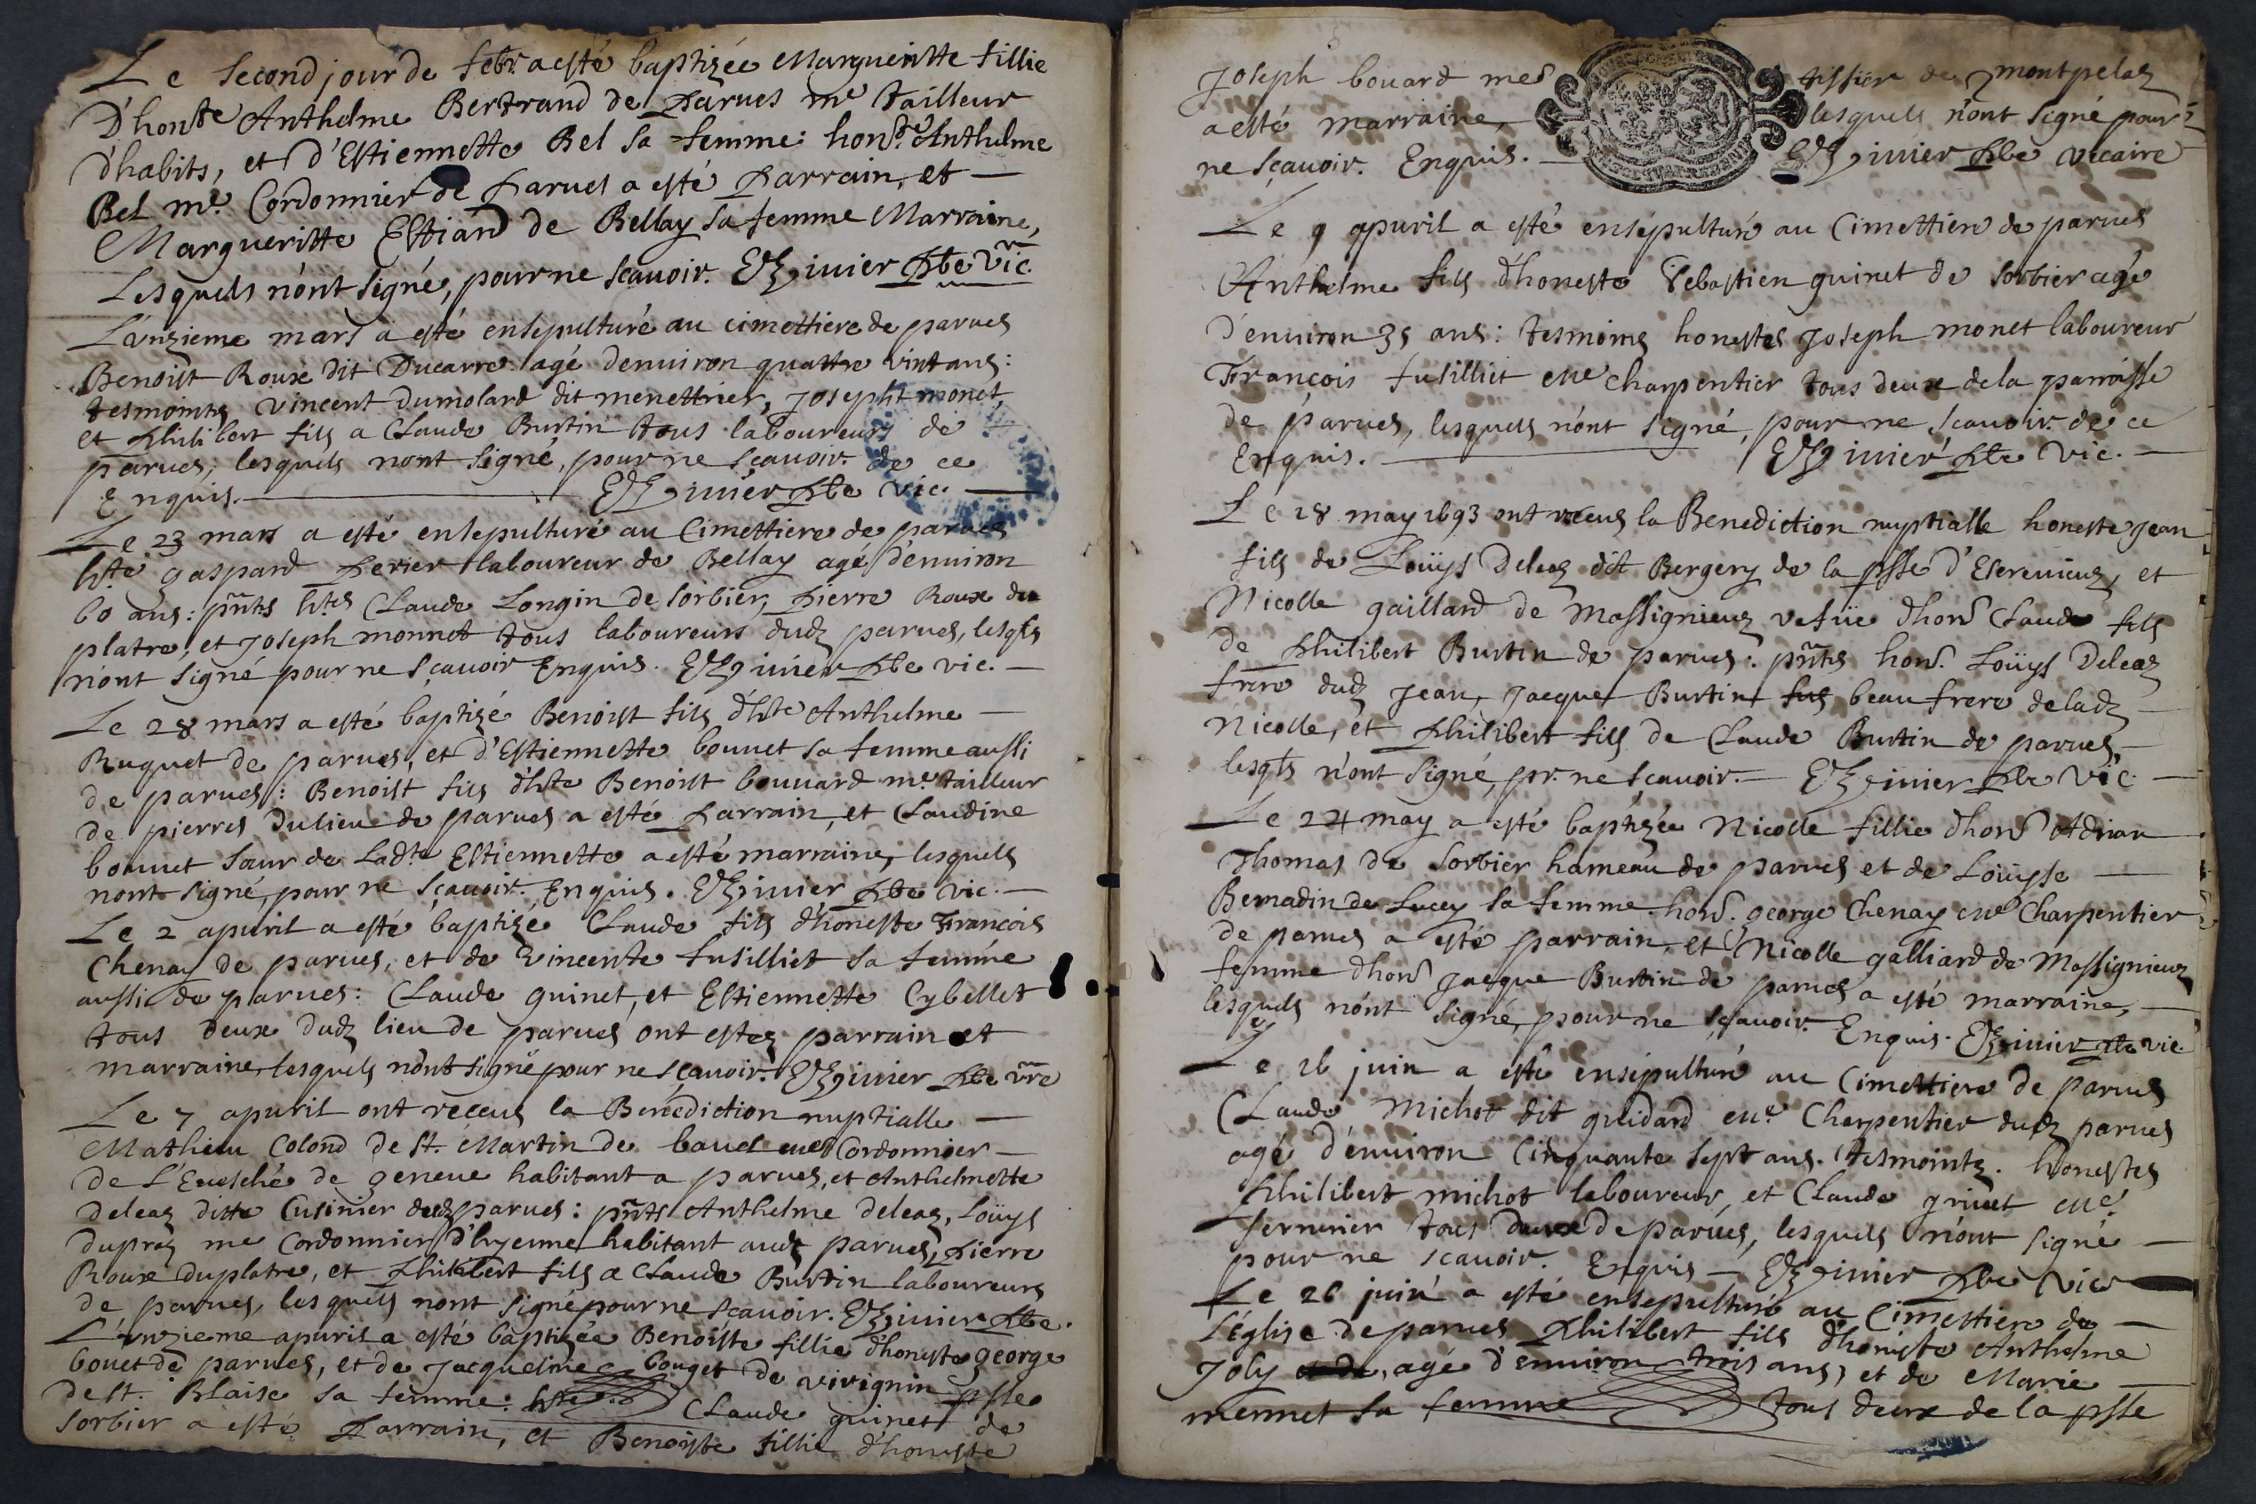 Le second jour de febr. a esté baptizée Margueritte fillie
D'honste Anthelme Bertrand de Parues me tailleur
d'habits, et d'Estiennette Bel sa femme: honste Anthelme
Bel me. Cordonnier de Parues a esté Parrain, et —
Margueritte Estiard de Bellay sa femme Marraine,
Lesquels n'ont signé, pour ne scauoir. Pbe vic.
L'unzieme mars a esté ensepulturé au cimettiere de parues
Benoist Roux dit Ducarre agé denuiron quattre vint ans:
tesmoints vincent dumolard dit menettrier, Joseph monet
et Philibert fils a Claude Burtin tous laboureurs de
parues, lesquels nont signé, pour ne sçauoir. de ce
Enquis. — Pbe vic. —
Le 23 mars a esté ensepulturé au Cimettiere de parues
hte gaspard Perier laboureur de Bellay agé d'enuiron
60 ans: pnts htes Claude Longin de sorbier, Pierre Roux du
platre, et Joseph monnet tous laboureurs dudz parues, lesqls
n'ont signé pour ne sçauoir Enquis. Pbe vic. —
Le 28 mars a esté baptizé Benoist fils d'hte Anthelme —
Ruguet de parues, et d'Estiennette bouuet sa femme aussi
de parues: Benoist fils d'hte Benoist bouuard me. tailleur
de pierres dulieu de parues a esté Parrain, et Claudine
bouuet sœur de Ladte Estiennette a esté marraine, lesquels
nont signé, pour ne sçauoir. Enquis. Pbe vic. —
Le 2 apuril a esté baptizé Claude fils d'honeste François
Chenay de parues, et de Vincente fusilliet sa femme
aussi de parues: Claude guinet, et Estiennette Cybellet
tous deux dudz lieu de parues ont estez parrain et
marraine, lesquels n'ont signé pour ne sçauoir. Pbe vre
Le 7 apuril ont receus la Benédiction nuptialle —
Mathieu Colond de St. Martin de baud me Cordonnier —
de L'Euesché de geneue habitant a parues, et Anthelmette
deleaz ditte Cusinier dudz parues: pnts Anthelme deleaz, Loüys
dupraz me Cordonnier d'hyenne habitant audz parues, Pierre
Roux duplatre, et Philibert fils a Claude Burtin laboureurs
de parues, lesquels nont signé pour ne sçauoir. Pbe.
L'unzieme apuril a esté baptizée Benoiste fillie d'honeste george
bouet de parues, et de Jacquelme bouget de virignin psse
de St. Blaise sa femme: hte Claude guinet de
sorbier a esté Parrain, et Benoiste fillie d'honeste
Joseph bouard me tissier de montpelaz
a esté marraine, lesquels n'ont signé pour
ne sçauoir. Enquis. — Pbe vicaire
Le 9 apuril a esté ensépulturé au Cimettiere de parues
Anthelme fils d'honeste Sebastien guinet de sorbier agé
d'enuiron 35 ans: tesmoins honestes Joseph monet laboureur
François fusilliet me charpentier tous deux dela parroisse
de parues, lesquels n'ont signé, pour ne scauoir. de ce
Enquis. — Pbe vic. —
Le 18 may 1693 ont receus la Benediction nuptialle honeste Jean
fils de Loüys Deleaz dit Bergery de la psse d'Escreuieuz, et
Nicolle gaillard de Massignieuz vefue d'hon Claude fils
de Philibert Burtin de parues: pnts hon. Loüys Deleaz
frere dudz Jean, Jacque Burtin beau frere deladz
Nicolle, et Philibert fils de Claude Burtin de parues —
lesqls n'ont signé, pr. ne sçauoir. — Pbe vic. —
Le 24 may a esté baptizée Nicolle fillie d'hon Adrian
Thomas de sorbier hameau de parues et de Loüyse —
Bernadin de Lucey sa femme. hon. george Chenay me Charpentier
de parues a esté parrain, et Nicolle galliard de Massignieuz
femme d'hon Jacque Burtin de parues a esté marraine, —
lesquels n'ont signé, pour ne sçauoir. Enquis. Pbe vic.
Le 16 juin a esté ensépulturé au Cimettiere de parues
Claude Michot dit guidard me Charpentier dudz parues
agé d'enuiron Cinquante sept ans. tesmoints. honestes
Philibert michot laboureur, et Claude guinet me
serrurier tous deux de parues, lesquels n'ont signé —
pour ne scauoir. Enquis — Pbe vic
Le 26 juin a esté ensepulturé au Cimettiere de —
L'église de parues Philibert fils d'honeste Anthelme
Joly, agé d'enuiron trois ans, et de Marie —
mermet sa femme tous deux de la psse